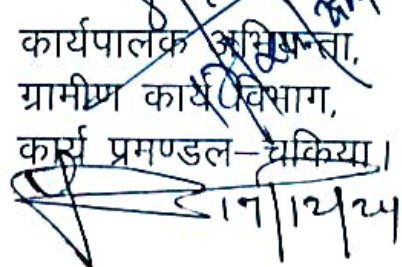 कार्यपालक अभियन्ता,
ग्रामीण कार्य विभाग,
कार्य प्रमण्डल–चकिया।
17/12/24